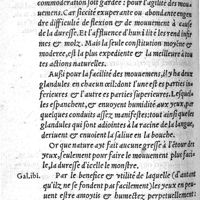 commoderation soit gardée : pour l'agilité des mou
uemens. Car siccité exuperante ou abondante engen
dre difficulté de flexion & de mouuement à cause
de la duresse. Et l'affluence d'humidité les rend infir
mes & molz. Mais la seule constitution moyēne &
moderée, est la plus expediente & la meilleure à tou
tes actions naturelles.
Aussi pour la facilité des mouuemens, il y ha deux
glandules en chacun œil: dont l'une est es parties in-
ferieures & l'autre es parties superieures. Lesquel-
les espanchent, & enuoyent humidité aux yeux, par
quelques conduitz assez manifestes: tout ainsi que les
glandules qui sont assises à la racine de la langue,
deriuent & enuoient la saliue en la bouche.
Or que nature ayt fait aucune gresse à l'étour des
yeux, seulement pour faire le mouuement plus facile
le, la duresse d'icelle le monstre.
Gal. ibi. Par le benefice & vtilité de laquelle (d'autant
qu'ilz ne se fondent pas facilement) les yeux en peu-
uent estre amoytis & humectez perpetuellement: